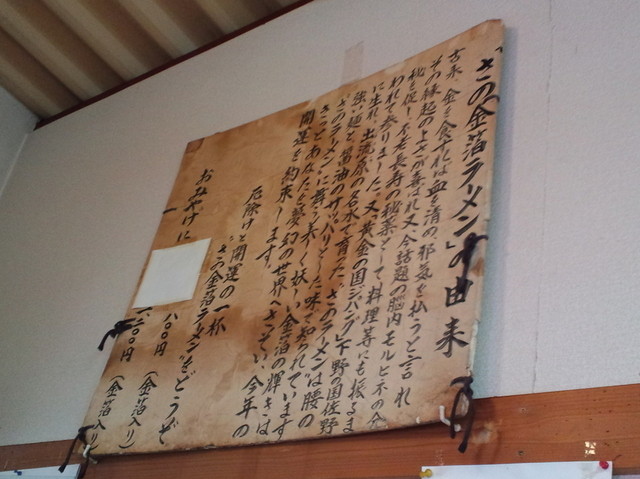 "さの金箔ラーメン"の由来
古来、金を食すれば血を清め邪気を払うと言われ
その縁起のよさが喜ばれ又、今話題の脳内モルヒネの分
秘を促し、不老長寿の秘薬として料理等にも振るま
われて参りました。又、黄金の国ジパング、下野の国佐野
に生れ、出流原の名水で育った"さのラーメン"は腰の
強い麺と醤油のサッパリとした味で知られています
"さのラーメン"に舞う美しく妖しい金箔の輝きは
きっとあなたを夢幻の世界へさそい、今年の
開運を約束します。
厄除けと開運の一杯
"さの金箔ラーメン"をどうぞ
八〇〇円 (金箔入り)
おみやげに
一、二〇〇円 (金箔入り)